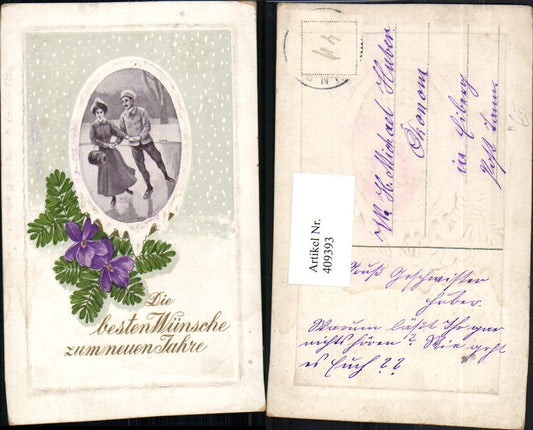 Die
besten Wünsche
zum neuen Jahre
Artikel Nr.
409393
H. Michael Huber
Ökonom
in
Post
Gruß Geschwister
Huber.
Warum läßt Ihr gar
nichts hören? Wie geht
es Euch??